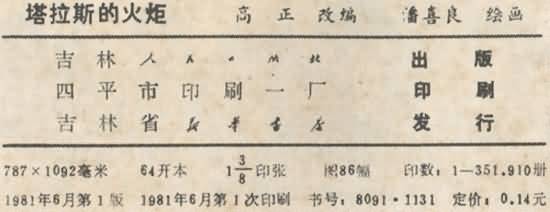 塔拉斯的火炬 高正 改编 潘喜良 绘画
吉林人民出版社 出版
四平市印刷一厂 印刷
吉林省新华书店 发行
787×1092毫米 64开本 1 3/8印张 图86幅 印数：1—351,910册
1981年6月第1版 1981年6月第1次印刷 书号：8091·1131 定价：0.14元